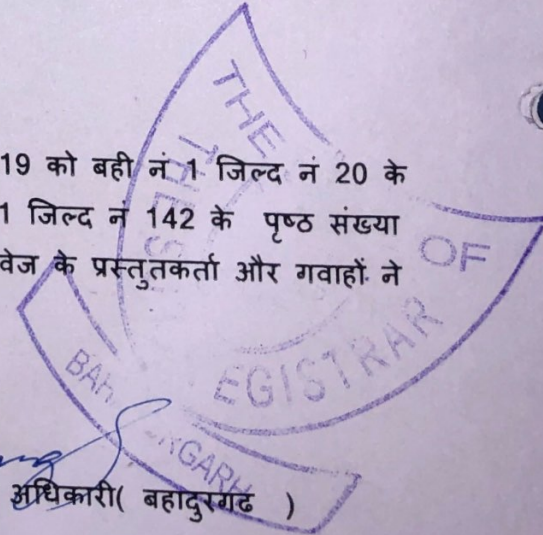 19 को बही नं 1 जिल्द नं 20 के
1 जिल्द नं 142 के पृष्ठ संख्या
वेज के प्रस्तुतकर्ता और गवाहों ने
अधिकारी( बहादुरगढ )
THE
OF
EGISTRAR
BAH
RGARH